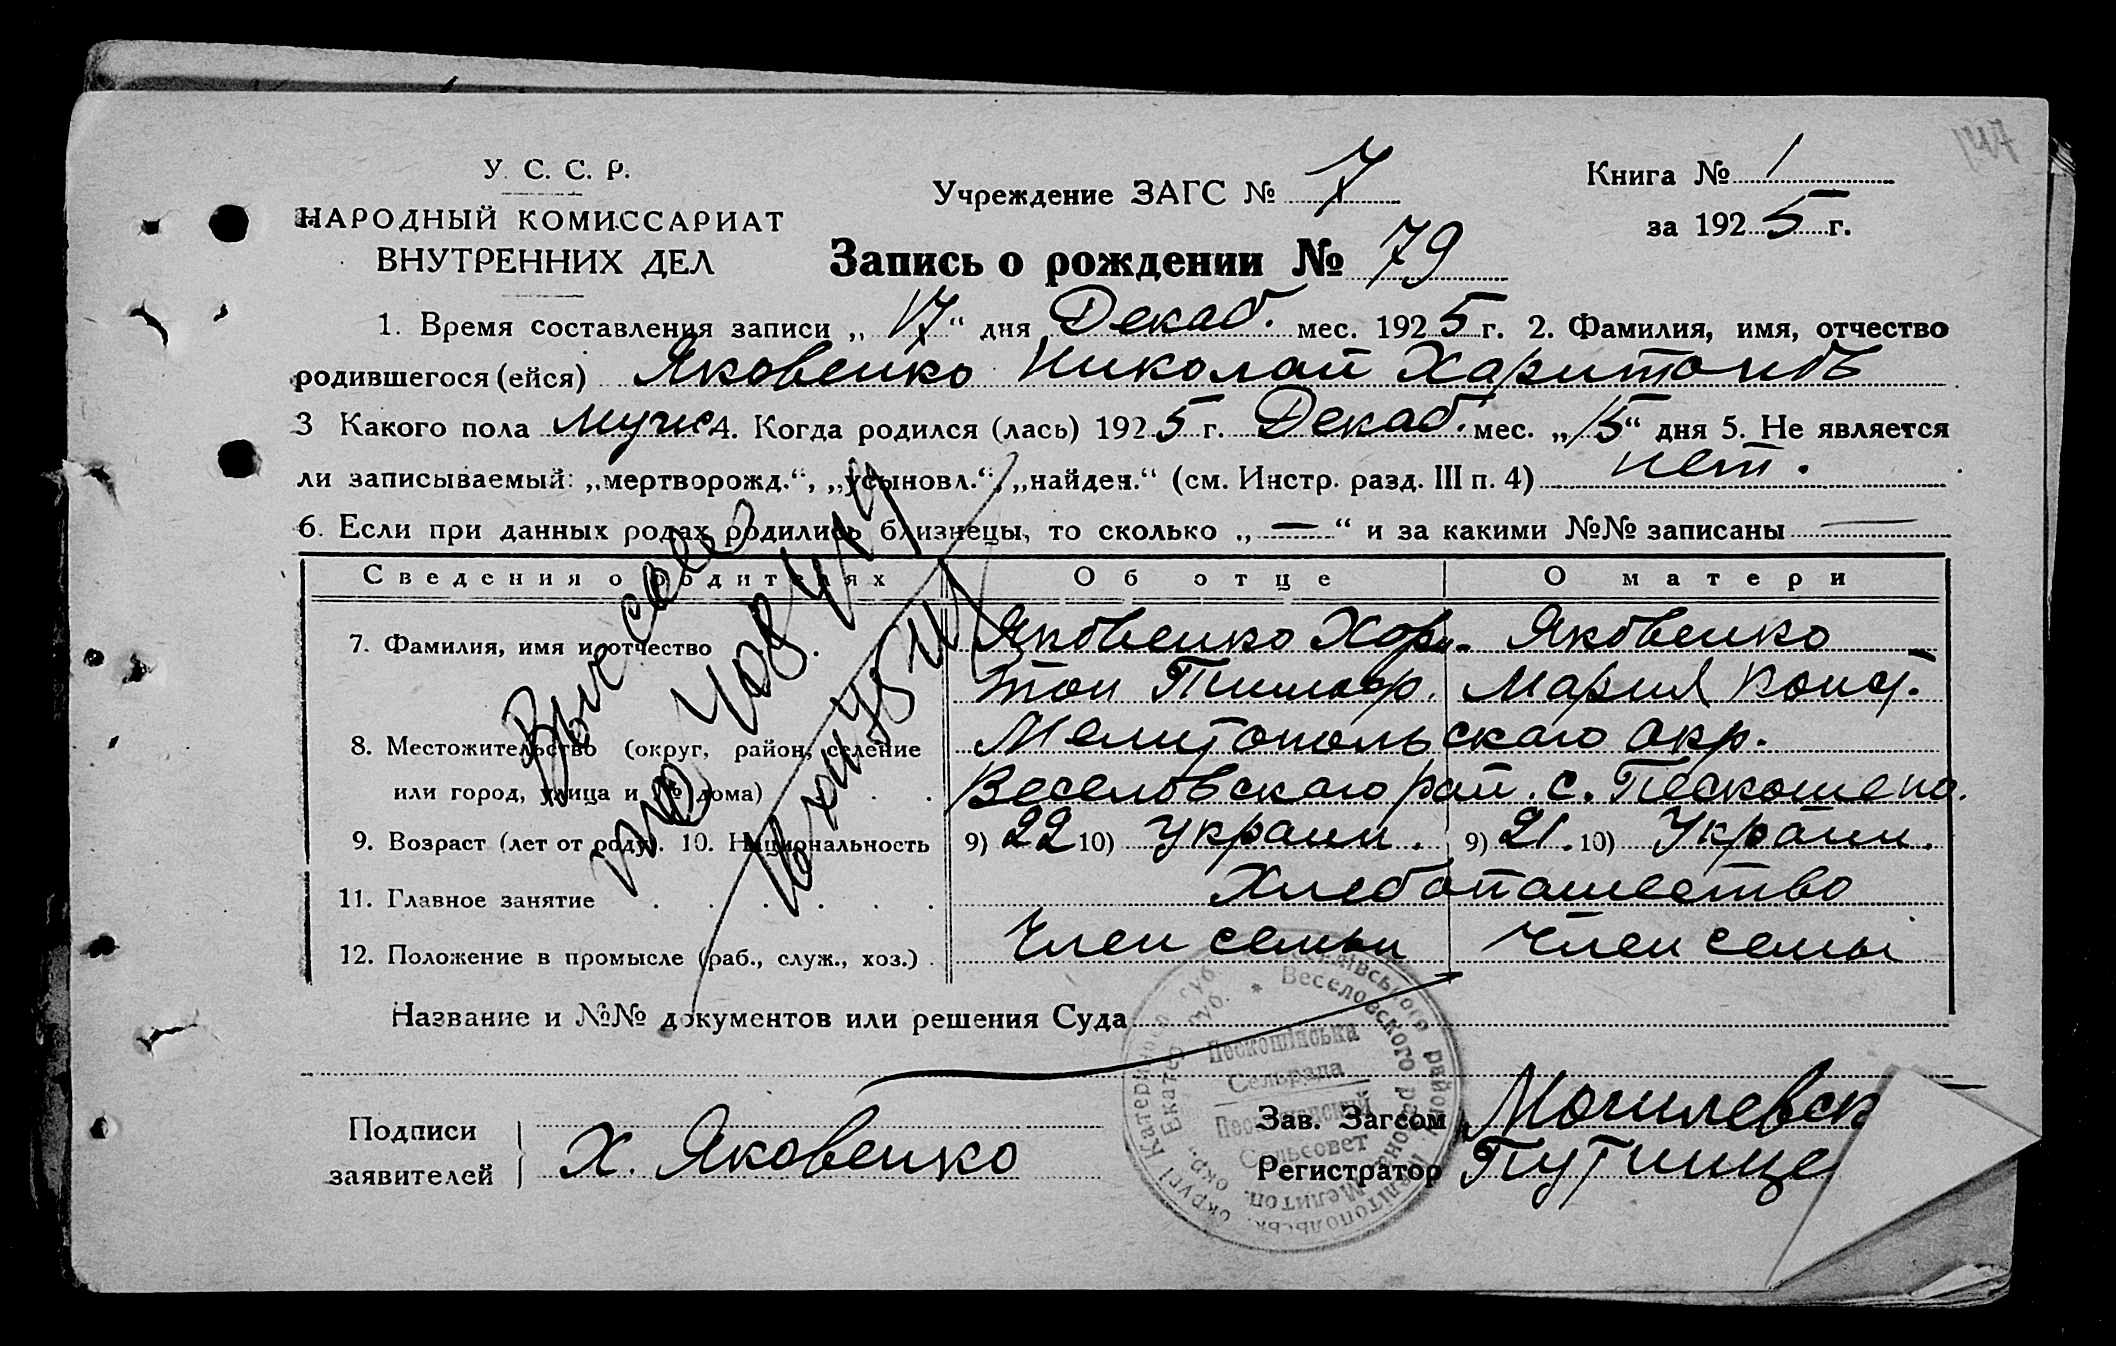 147
У. С. С. Р.
НАРОДНЫЙ КОМИССАРИАТ
ВНУТРЕННИХ ДЕЛ
Учреждение ЗАГС № 7
Книга № 1
за 1925 г.
Запись о рождении № 79
1. Время составления записи „17“ дня Декаб. мес. 1925 г. 2. Фамилия, имя, отчество
родившегося (ейся) Яковенко Николай Харитонов
3 Какого пола мужс 4. Когда родился (лась) 1925 г. Декаб. мес. „15“ дня 5. Не является
ли записываемый: „мертворожд.“, „усыновл.“, „найден.“ (см. Инстр. разд. III п. 4) нет.
6. Если при данных родах родились близнецы, то сколько „—“ и за какими №№ записаны —
Сведения о родителях Об отце О матери
7. Фамилия, имя и отчество Яковенко Хари- Яковенко
тон Мария Конст.
8. Местожительство (округ, район, селение Мелитопольскаго окр.
или город, улица и № дома) Веселовскаго рай. с. Пескошено.
9. Возраст (лет от роду). 10. Национальность 9) 22 10) Украин. 9) 21. 10) Украин.
11. Главное занятие Хлебопашество
12. Положение в промысле (раб., служ., хоз.) Член семьи Член семьи
Название и №№ документов или решения Суда
Пескошінська
Сельрада
Сельсовет
Веселовского района
Подписи
заявителей Х. Яковенко
Зав. Загсом Могилевск
Регистратор